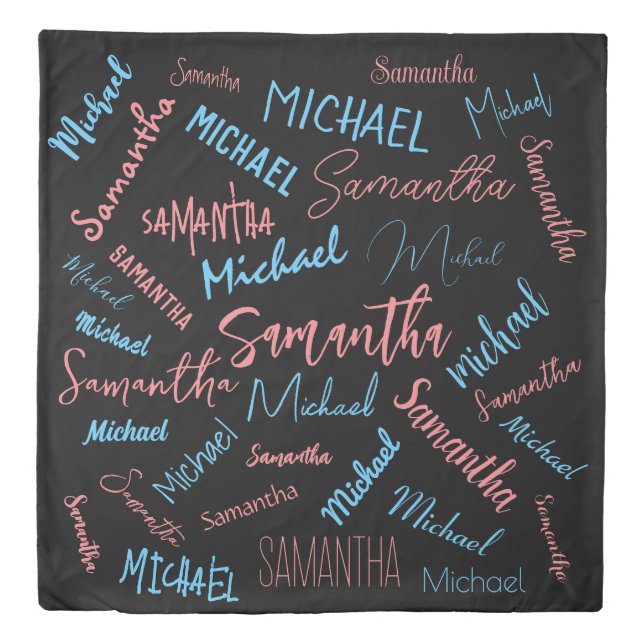 Michael
Samantha
Samantha
MICHAEL
Michael
Samantha
MICHAEL
Samantha
Samantha
SAMANTHA
Michael
Michael
SAMANTHA
Michael
Michael
Samantha
Michael
Samantha
Michael
Samantha
Samantha
Michael
Michael
Samantha
Michael
Samantha
Michael
Samantha
Samantha
Samantha
Michael
Samantha
MICHAEL
SAMANTHA
Michael